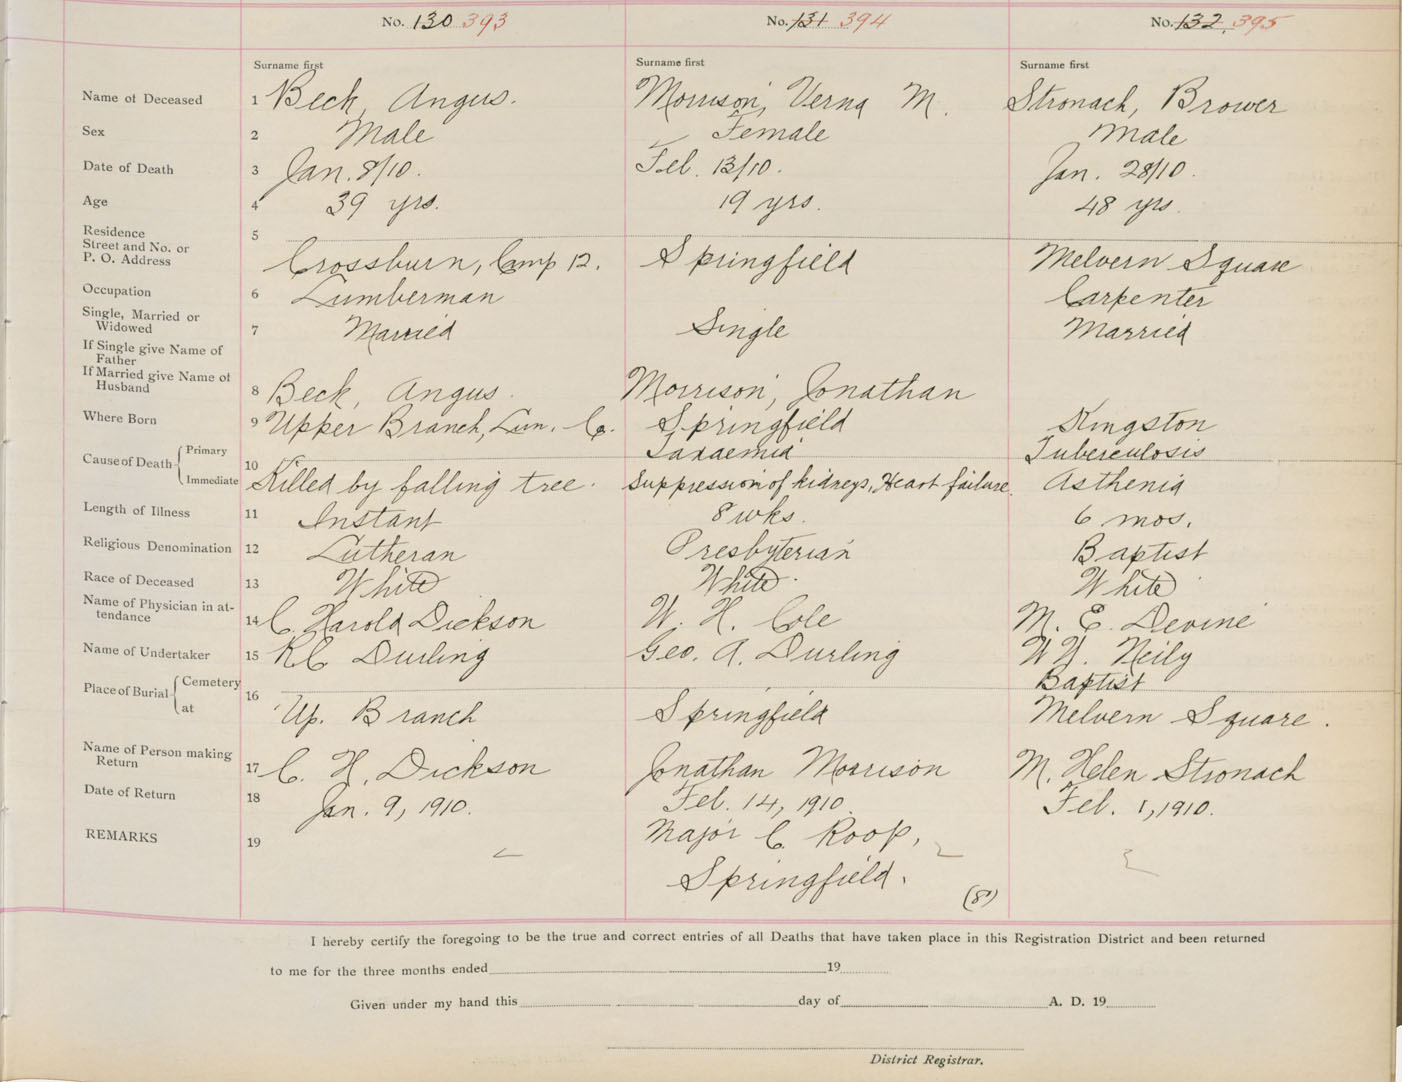 No. 130 393 No. 131 394 No. 132. 395
Surname first Surname first Surname first
Name of Deceased 1 Beck, Angus. Morrison, Verna M. Stronach, Brower
Sex 2 Male Female Male
Date of Death 3 Jan. 8/10. Feb. 13/10. Jan. 28/10.
Age 4 39 yrs. 19 yrs. 48 yrs.
Residence
Street and No. or
P. O. Address 5 Crossburn, Camp 12. Springfield Melvern Square
Occupation 6 Lumberman Carpenter
Single, Married or
Widowed 7 Married Single Married
If Single give Name of
Father
If Married give Name of
Husband 8 Beck, Angus. Morrison, Jonathan
Where Born 9 Upper Branch, Lun. Co. Springfield Kingston
Cause of Death Primary 10 Toxaemia Tuberculosis
Immediate Killed by falling tree. Suppression of kidneys, Heart failure. Asthenia
Length of Illness 11 Instant 8 wks. 6 mos.
Religious Denomination 12 Lutheran Presbyterian Baptist
Race of Deceased 13 White White White
Name of Physician in at-
tendance 14 C. Harold Dickson W. H. Cole M. E. Devine
Name of Undertaker 15 Durling Geo. A. Durling Neily
Place of Burial Cemetery 16 Baptist
at Up. Branch Springfield Melvern Square.
Name of Person making
Return 17 C. H. Dickson Jonathan Morrison M. Helen Stronach
Date of Return 18 Jan. 9, 1910. Feb. 14, 1910. Feb. 1, 1910.
REMARKS 19 Major C. Roop,
Springfield.
(8)
I hereby certify the foregoing to be the true and correct entries of all Deaths that have taken place in this Registration District and been returned
to me for the three months ended 19
Given under my hand this day of A. D. 19
District Registrar.